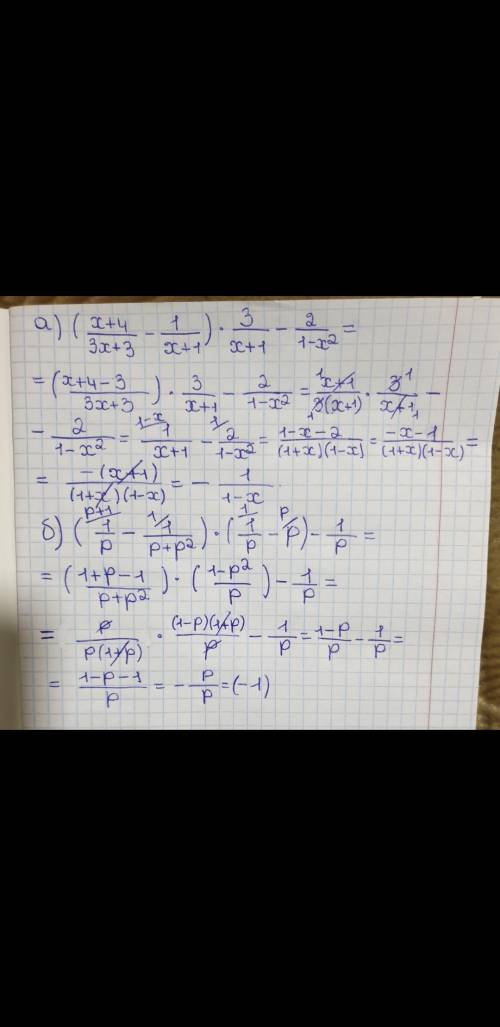 а) ((x+4)/(3x+3) - 1/(x+1)) · 3/(x+1) - 2/(1-x²) =
= ((x+4-3)/(3x+3)) · 3/(x+1) - 2/(1-x²) = (x+1)/(3(x+1)) · 3/(x+1) -
- 2/(1-x²) = 1/(x+1) - 2/(1-x²) = (1-x-2)/((1+x)(1-x)) = (-x-1)/((1+x)(1-x)) =
= -(x+1)/((1+x)(1-x)) = - 1/(1-x).
б) (1/p - 1/(p+p²)) · (1/p - p) - 1/p =
= ((1+p-1)/(p+p²)) · ((1-p²)/p) - 1/p =
= p/(p(1+p)) · ((1-p)(1+p))/p - 1/p = (1-p)/p - 1/p =
= (1-p-1)/p = - p/p = (-1)